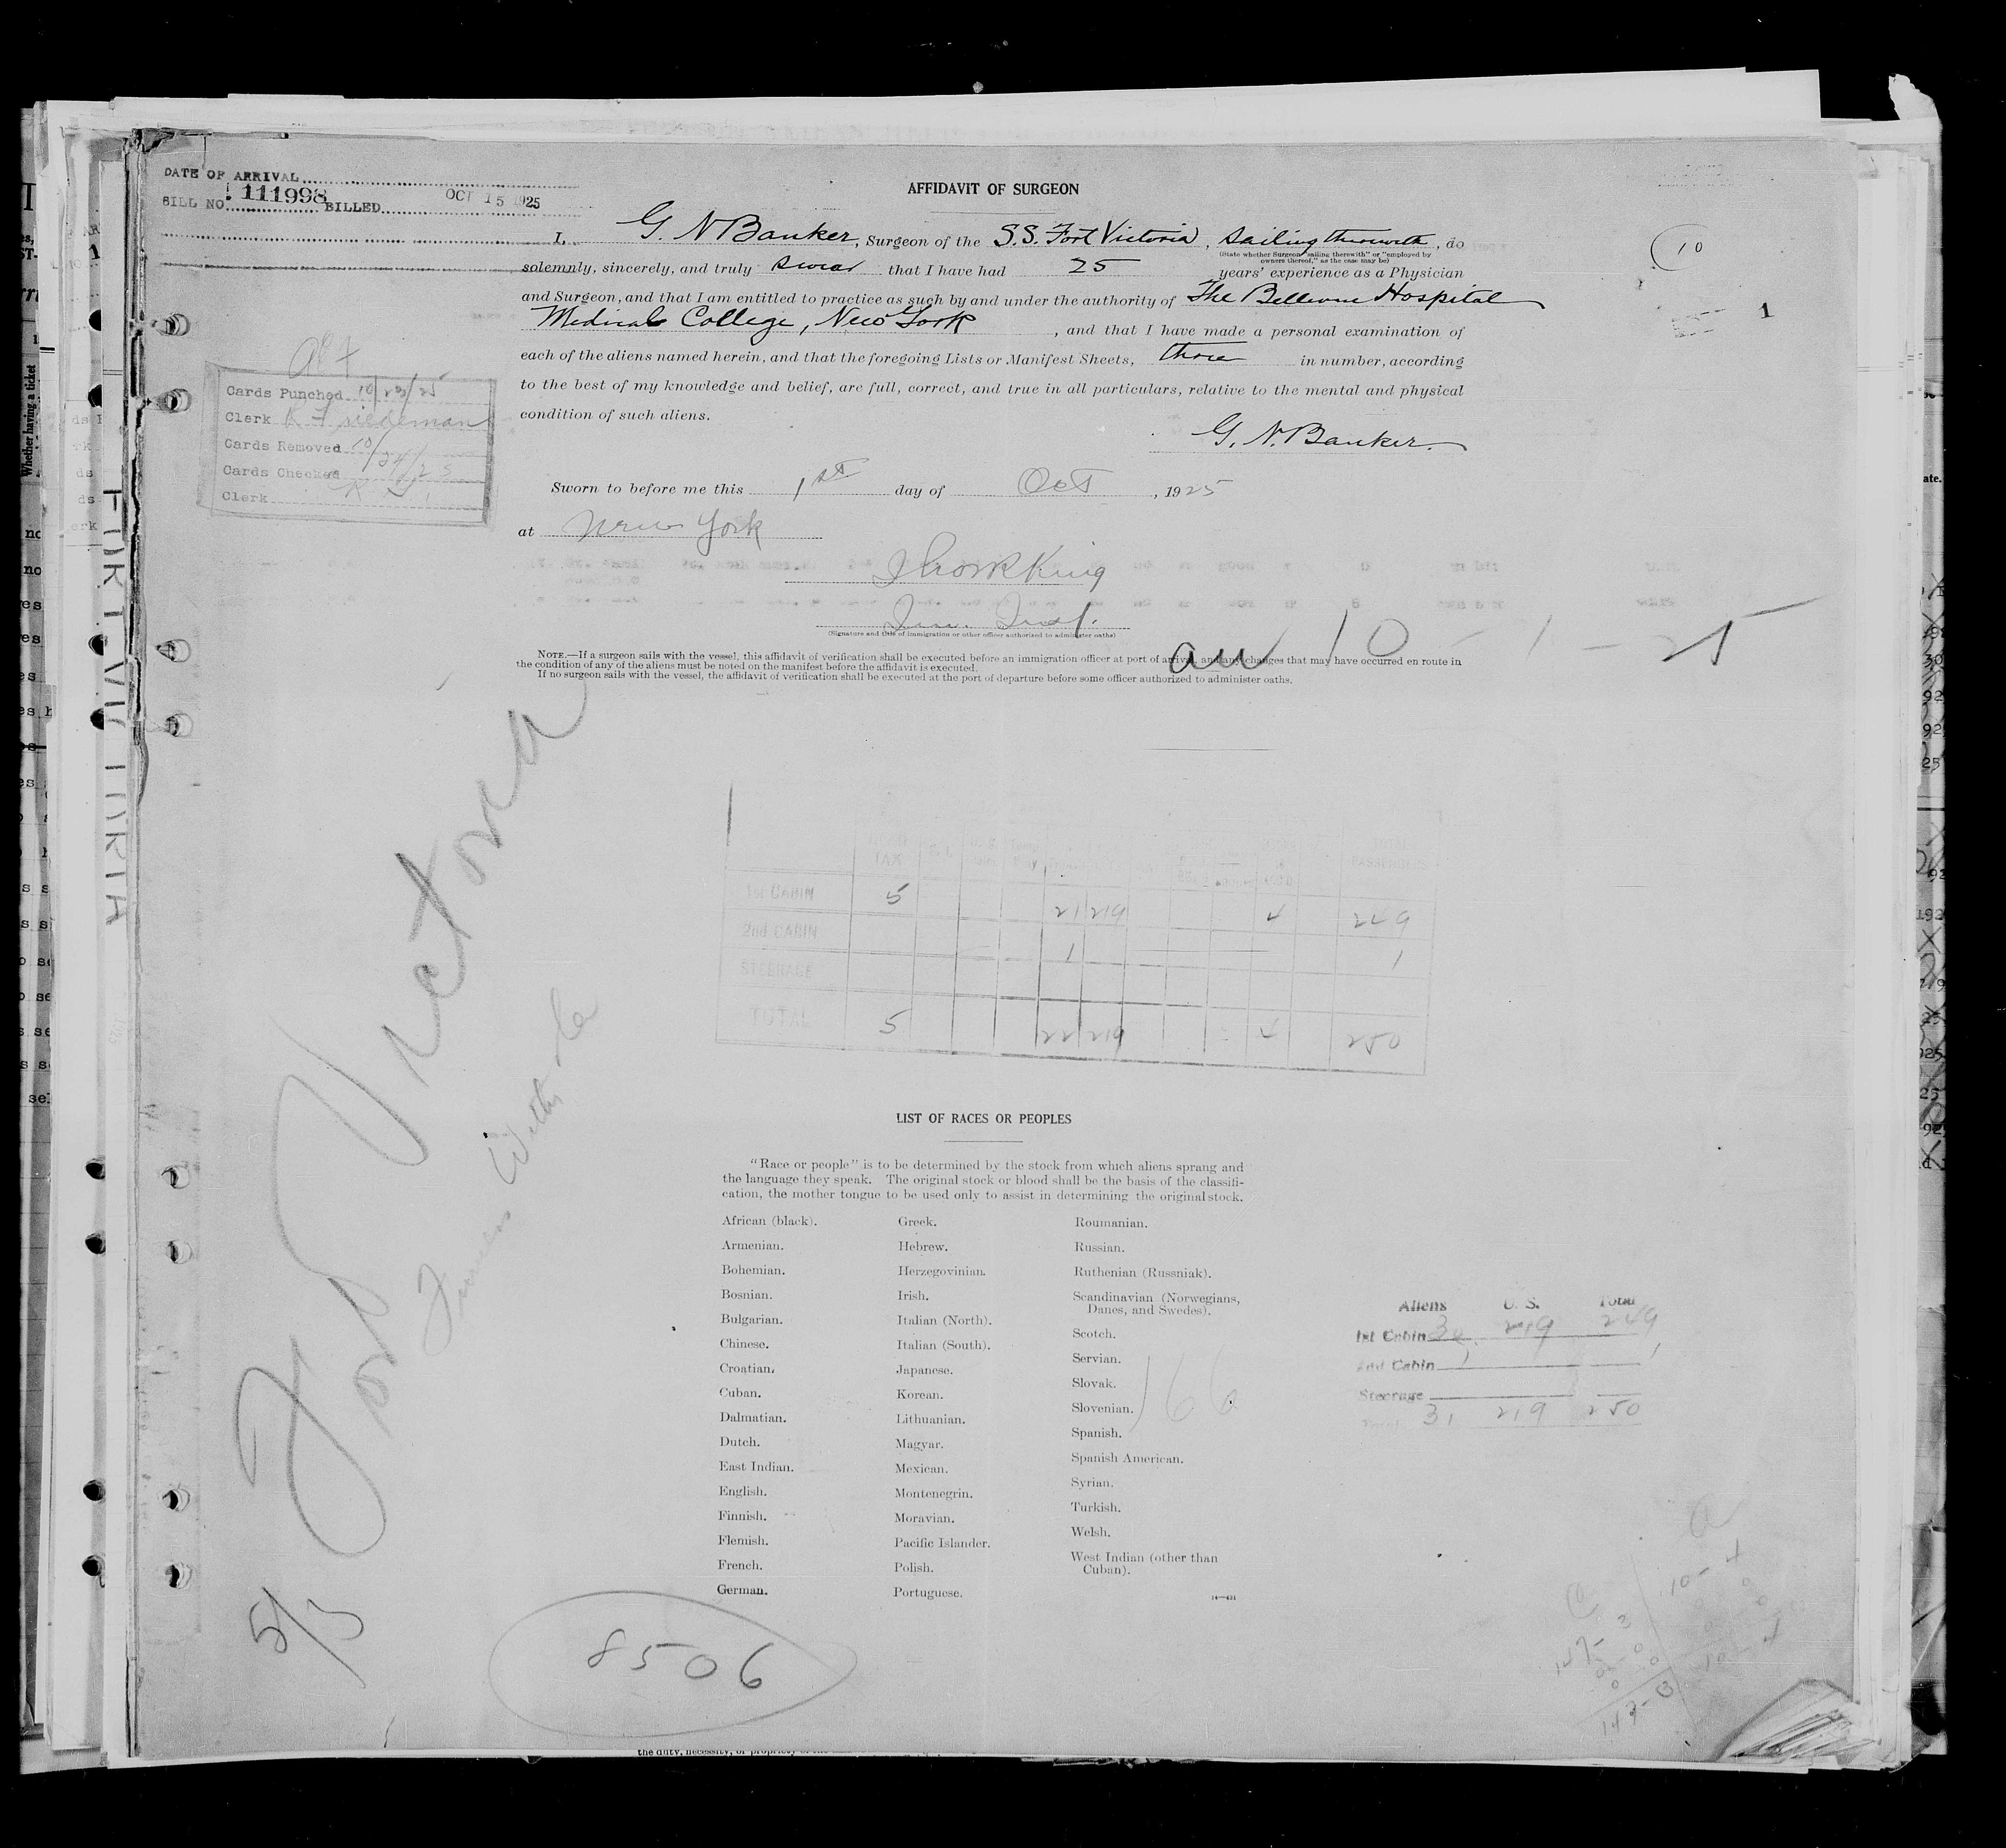 DATE OF ARRIVAL
BILL NO. 111998 BILLED OCT 15 1925
AFFIDAVIT OF SURGEON
I, G. N Banker, Surgeon of the S.S. Fort Victoria, sailing therewith, do
(State whether Surgeon "sailing therewith" or "employed by
owners thereof," as the case may be)
10
solemnly, sincerely, and truly swear that I have had 25 years' experience as a Physician
and Surgeon, and that I am entitled to practice as such by and under the authority of The Bellevue Hospital
1
Medical College, New York, and that I have made a personal examination of
each of the aliens named herein, and that the foregoing Lists or Manifest Sheets, three in number, according
to the best of my knowledge and belief, are full, correct, and true in all particulars, relative to the mental and physical
condition of such aliens.
G. N. Banker.
Cards Punched 10/23/25
Clerk
Cards Removed 10/24/25
Cards Checked
Clerk
Sworn to before me this 1st day of Oct, 1925
at New York
King
Imm. Insp.
(Signature and title of immigration or other officer authorized to administer oaths)
10-1-25
NOTE.—If a surgeon sails with the vessel, this affidavit of verification shall be executed before an immigration officer at port of arrival, and any changes that may have occurred en route in
the condition of any of the aliens must be noted on the manifest before the affidavit is executed.
If no surgeon sails with the vessel, the affidavit of verification shall be executed at the port of departure before some officer authorized to administer oaths.
FORT VICTORIA
Fort Victoria
Furness Withy
TAX TOTAL PASSENGERS
1st CABIN 5 21 219 4 249
2nd CABIN 1 1
STEERAGE
TOTAL 5 22 219 4 250
LIST OF RACES OR PEOPLES
"Race or people" is to be determined by the stock from which aliens sprang and
the language they speak. The original stock or blood shall be the basis of the classifi-
cation, the mother tongue to be used only to assist in determining the original stock.
African (black).
Armenian.
Bohemian.
Bosnian.
Bulgarian.
Chinese.
Croatian.
Cuban.
Dalmatian.
Dutch.
East Indian.
English.
Finnish.
Flemish.
French.
German.
Greek.
Hebrew.
Herzegovinian.
Irish.
Italian (North).
Italian (South).
Japanese.
Korean.
Lithuanian.
Magyar.
Mexican.
Montenegrin.
Moravian.
Pacific Islander.
Polish.
Portuguese.
Roumanian.
Russian.
Ruthenian (Russniak).
Scandinavian (Norwegians,
Danes, and Swedes).
Scotch.
Servian.
Slovak.
Slovenian.
Spanish.
Spanish American.
Syrian.
Turkish.
Welsh.
West Indian (other than
Cuban).
166
Aliens U. S. Total
1st Cabin 30 219 249
2nd Cabin 1 1
Steerage
Total 31 219 250
8506